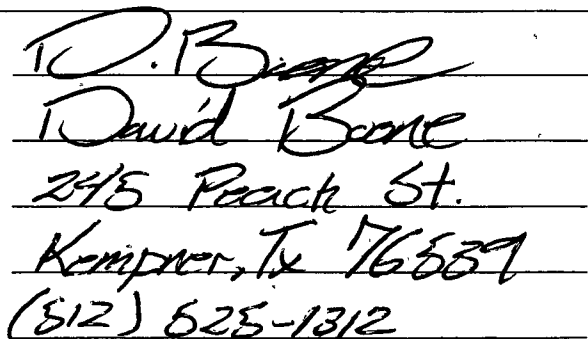 D. Boone
David Boone
245 Peach St.
Kempner, Tx 76539
(512) 525-1312